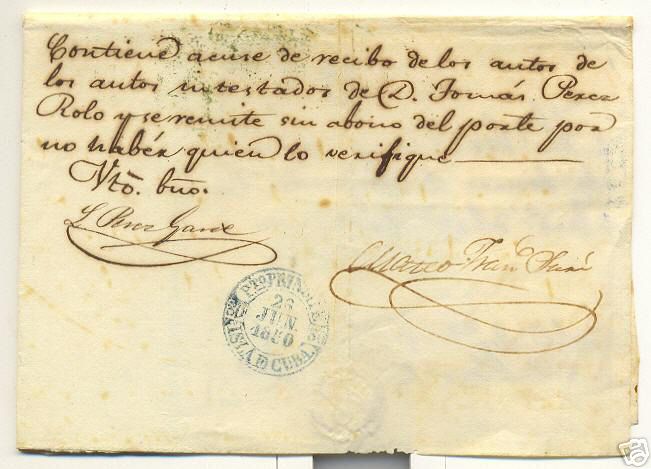 Contiene acuse de recibo de los autos de
los autos intestados de D. Tomás Perez
Rolo y se remite sin abono del porte por
no haber quien lo verifique
Vto. bno.
L. Perez Garce
Marco Fran
Pto PRINCIPE
26
JUN.
1850
ISLA D CUBA